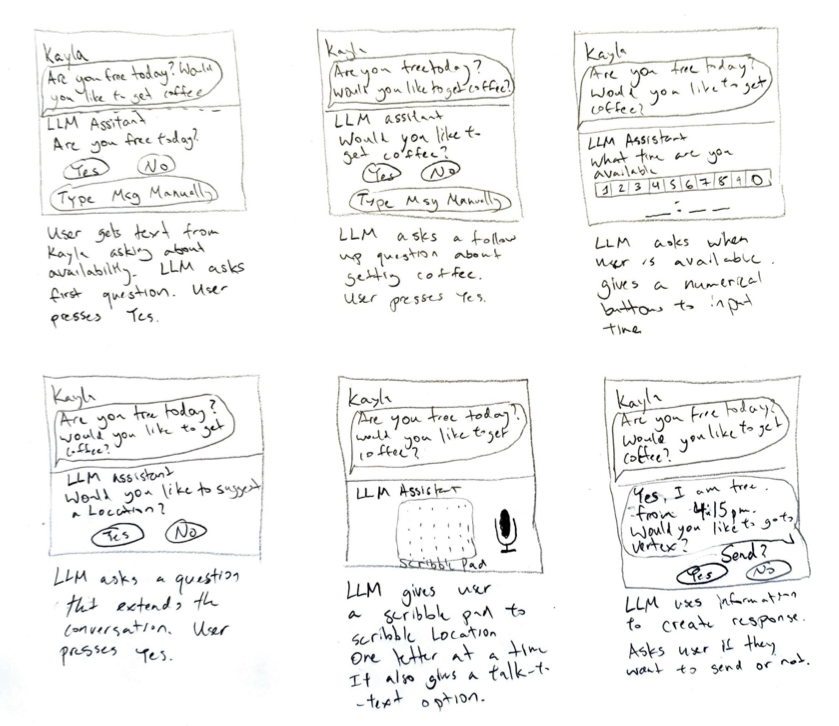 Kayla
Are you free today? Would
you like to get coffee
LLM Assitant
Are you free today?
Yes No
Type Msg Manually
User gets text from
Kayla asking about
availability. LLM asks
first question. User
presses Yes.
Kayla
Are you free today?
Would you like to get coffee?
LLM assistant
Would you like to
get coffee?
Yes No
Type Msg Manually
LLM asks a follow
up question about
getting coffee.
User presses Yes.
Kayla
Are you free today?
Would you like to get
coffee?
LLM Assistant
What time are you
available
1 2 3 4 5 6 7 8 9 0
__:__
LLM asks when
user is available.
gives a numerical
buttons to input
time
Kayla
Are you free today?
Would you like to get
coffee?
LLM assistant
Would you like to suggest
a Location?
Yes No
LLM asks a question
that extends the
conversation. User
presses Yes.
Kayla
Are you free today?
would you like to get
coffee?
LLM Assistant
Scribble Pad
LLM gives user
a scribble pad to
scribble Location
One letter at a time
It also gives a talk-to
-text option.
Kayla
Are you free today?
Would you like to get
coffee?
Yes, I am free
from 4:15pm.
Would you like to go to
vertex?
Send?
Yes No
LLM uses information
to create response.
Asks user if they
want to send or not.